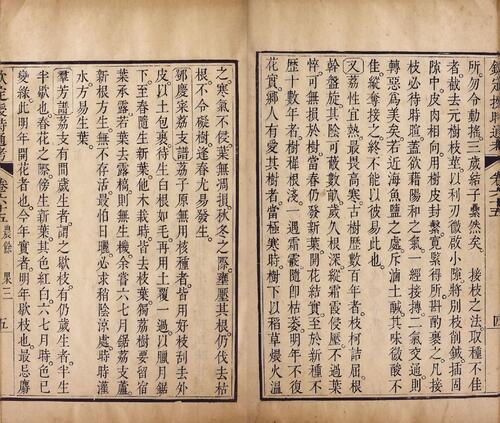 欽定授時通考 卷六十五 四
所勿令動搖。三歲結子纍然矣。 接枝之法。取種不佳
者。截去元樹枝莖。以利刃微啟小隙。將別枝削鍼插固
隙中。皮肉相向。用樹皮封繫。寬緊得所。斟酌裹之。凡接
枝必待時暄。蓋欲藉陽和之氣。一經接搏。二氣交通。則
轉惡為美矣。若近海魚鹽之處。斥滷土鹹。其味微酸不
佳。縱奪接之。終不能以彼易此也。
又荔性宜熱。最畏高寒。古樹歷數百年者。枝柯詰屈。根
幹盤旋。其陰可蔽數畝。歲久根深。縱霜霰侵壓。不過葉
悴。可無損於樹。當春仍發新葉。開花結實。至於新種。不
歷十數年者。樹穉根淺。一遇霜霰。隨即枯姿。明年不復
花實。鄉人有愛其樹者。當極寒時。樹下以稻草煨火溫
之。寒氣不侵。葉無凋損。秋冬之際。壅壓其根。仍伐去枯
根。不令礙樹。逢春尤易發生。
鄧慶寀荔支譜荔子原無用核種者。皆用好枝。刮去外
皮。以土包裹。待生白根如毛。再用土覆一過。以臘月鋸
下。至春隨生新葉。他木栽時。皆去枝葉。獨荔枝樹要留宿
葉承露。若葉去露稿。則無生機。余嘗六七月鋸荔支蘆。
新根方生。無不存活。最怕日曬。必求稍陰涼處。時時灌
水。方易生葉。
羣芳譜荔支有間歲生者。謂之歇枝。有仍歲生者。半生
半歇也。春花之際。傍生新葉。其色紅白。六七月時。色已
變綠。此明年開花者也。今年實者。明年歇枝也。最忌麝
欽定授時通考 卷六十五 農餘 果三 五